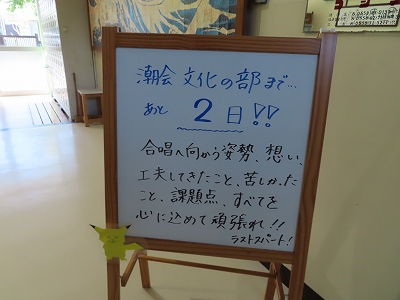 潮会 文化の部まで…
あと 2日!!
合唱へ向かう姿勢、想い、
工夫してきたこと、苦しかった
こと、課題点、すべてを
心に込めて頑張れ!!
ラストスパート!